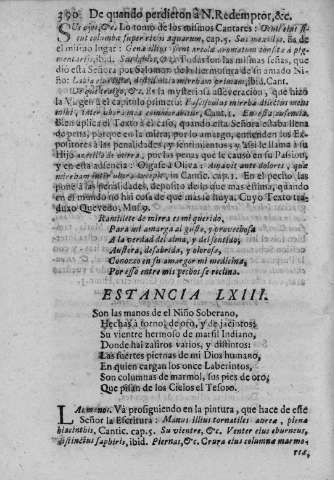 390. De quando perdieron à N. Redemptor, &c.
SUs ojos, &c. Lo tomò de los mismos Cantares: Oculi eius si-
cut columbæ super rivos aquarum, cap. 5. Sus mexillas, &c. de
el mismo lugar: Genæ illius sicut areolæ aromatum consitæ à pig-
mentarijs, ibid. Todas son las mismas señas, que
diò esta Señora por Salomon de la hermosura de su amado Ni-
ño: Labia eius distilantia mirrham primam, ibid. Cant.
&c. Es la mysteriosa asseveracion, que hizo
la Virgen à el capitulo primero: Fasciculus mirrhæ dilectus meus
mihi, inter ubera mea commorabitur, Cant. 1.
Bien aplica el Texto à el caso, quando esta Señora estaba llena
de penas, porque en la mirra, por lo amargo, entienden los Ex-
positores à las penalidades, y sentimientos y assi le llama à su
Hijo de mirra, por las penas que le causò en su Passion,
y en esta ausencia: Oigase à Oliva:
in Cantic. cap. 1. En el pecho las
pone à las penalidades, deposito de lo que mas estima, quando
en el mundo no hai cosa de que mas se huya. Cuyo Texto tra-
duxo Quevedo, Mus. 9.
Ramillete de mirra es mi querido,
Para mi amarga al gusto, y provechosa
A la verdad del alma, y del sentido;
Austera, desabrida, y olorosa,
Conozco en su amargor mi medicina,
Por esso entre mis pechos se reclina.
ESTANCIA LXIII.
Son las manos de el Niño Soberano,
Hechas à torno, de oro, y de jacintos;
Su vientre hermoso de marfil Indiano,
Donde hai zafiros varios, y distintos:
Las fuertes piernas de mi Dios humano,
En quien cargan los once Laberintos,
Son columnas de marmol, sus pies de oro,
Que pisan de los Cielos el Tesoro.
LAs manos. Và prosiguiendo en la pintura, que hace de este
Señor la Escritura: Manus illius tornatiles aureæ, plenæ
hiacinthis, Cantic. cap. 5. Su vientre, &c. Venter eius eburneus,
distinctus saphiris, ibid. Piernas, &c. Crura eius columnæ marmo-
reæ,